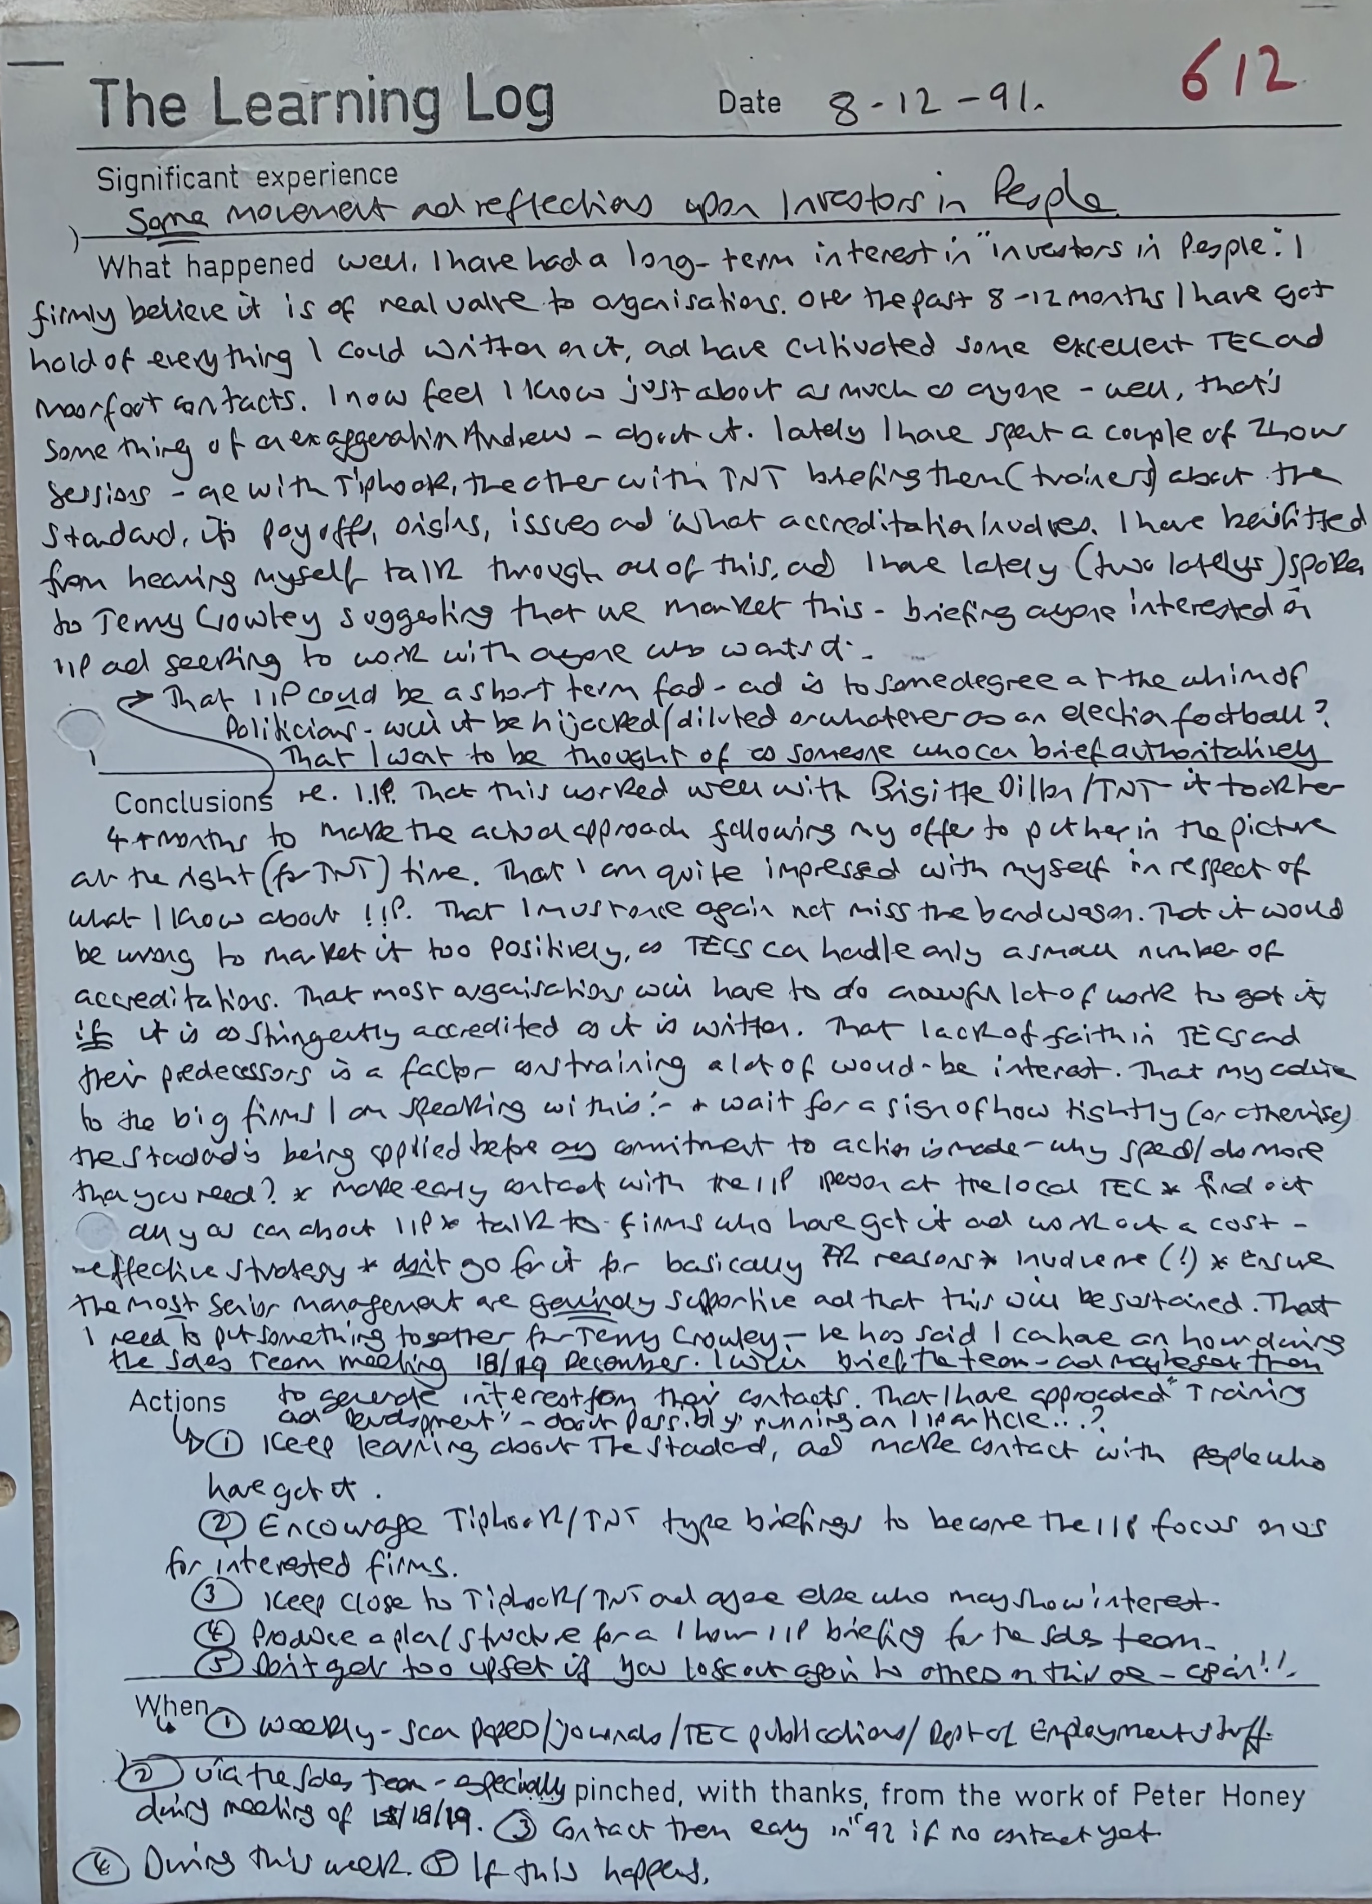 The Learning Log Date 8-12-91. 612
Significant experience
Some movement and reflections upon Investors in People
What happened well, I have had a long-term interest in "investors in People". I
firmly believe it is of real value to organisations. Over the past 8-12 months I have got
hold of everything I could written on it, and have cultivated some excellent TEC and
Moorfoot contacts. I now feel I know just about as much as anyone - well, that's
something of an exaggeration Andrew - about it. Lately I have spent a couple of 2 hour
sessions - one with Tiphook, the other with TNT briefing them (trainers) about the
standard, its payoffs, origins, issues and what accreditation involves. I have benefitted
from hearing myself talk through all of this, and I have lately (two latelys) spoken
to Terry Crowley suggesting that we market this - briefing anyone interested in
IIP and seeking to work with anyone who wants it.
That IIP could be a short term fad - and is to some degree at the whim of
Politicians - will it be hijacked/diluted or whatever as an election football?
That I want to be thought of as someone who can brief authoritatively
Conclusions re. I.I.P. That this worked well with Brigitte Dillon/TNT - it took her
4+ months to make the actual approach following my offer to put her in the picture
at the right (for TNT) time. That I am quite impressed with myself in respect of
what I know about IIP. That I must once again not miss the bandwagon. That it would
be wrong to market it too positively, as TECS can handle only a small number of
accreditations. That most organisations will have to do an awful lot of work to get it,
if it is as stringently accredited as it is written. That lack of faith in TECs and
their predecessors is a factor constraining a lot of would-be interest. That my advice
to the big firms I am speaking with is:- * wait for a sign of how tightly (or otherwise)
the standard is being applied before any commitment to action is made - why spend/do more
than you need? * make early contact with the IIP person at the local TEC * find out
all you can about IIP * talk to firms who have got it and work out a cost-
-effective strategy * don't go for it for basically PR reasons * involve me (!) * Ensure
the most senior management are genuinely supportive and that this will be sustained. That
I need to put something together for Terry Crowley - he has said I can have an hour during
the Sales Team meeting 18/19 December. I will brief the team - and maybe get them
Actions to generate interest from their contacts. That I have approached "Training
and Development" - about possibly running an IIP article...?
① Keep learning about the standard, and make contact with people who
have got it.
② Encourage Tiphook/TNT type briefings to become the IIP focus on us
for interested firms.
③ Keep close to Tiphook/TNT and anyone else who may show interest.
④ Produce a plan/structure for a 1 hour IIP briefing for the sales team.
⑤ Don't get too upset if you lose out again to others on this one - again!!.
When ① Weekly - scan papers/journals/TEC publications/Dept of Employment stuff.
② via the sales team - especially pinched, with thanks, from the work of Peter Honey
during meeting of 18/19. ③ Contact them early in '92 if no contact yet
④ During this week. ⑤ If this happens.